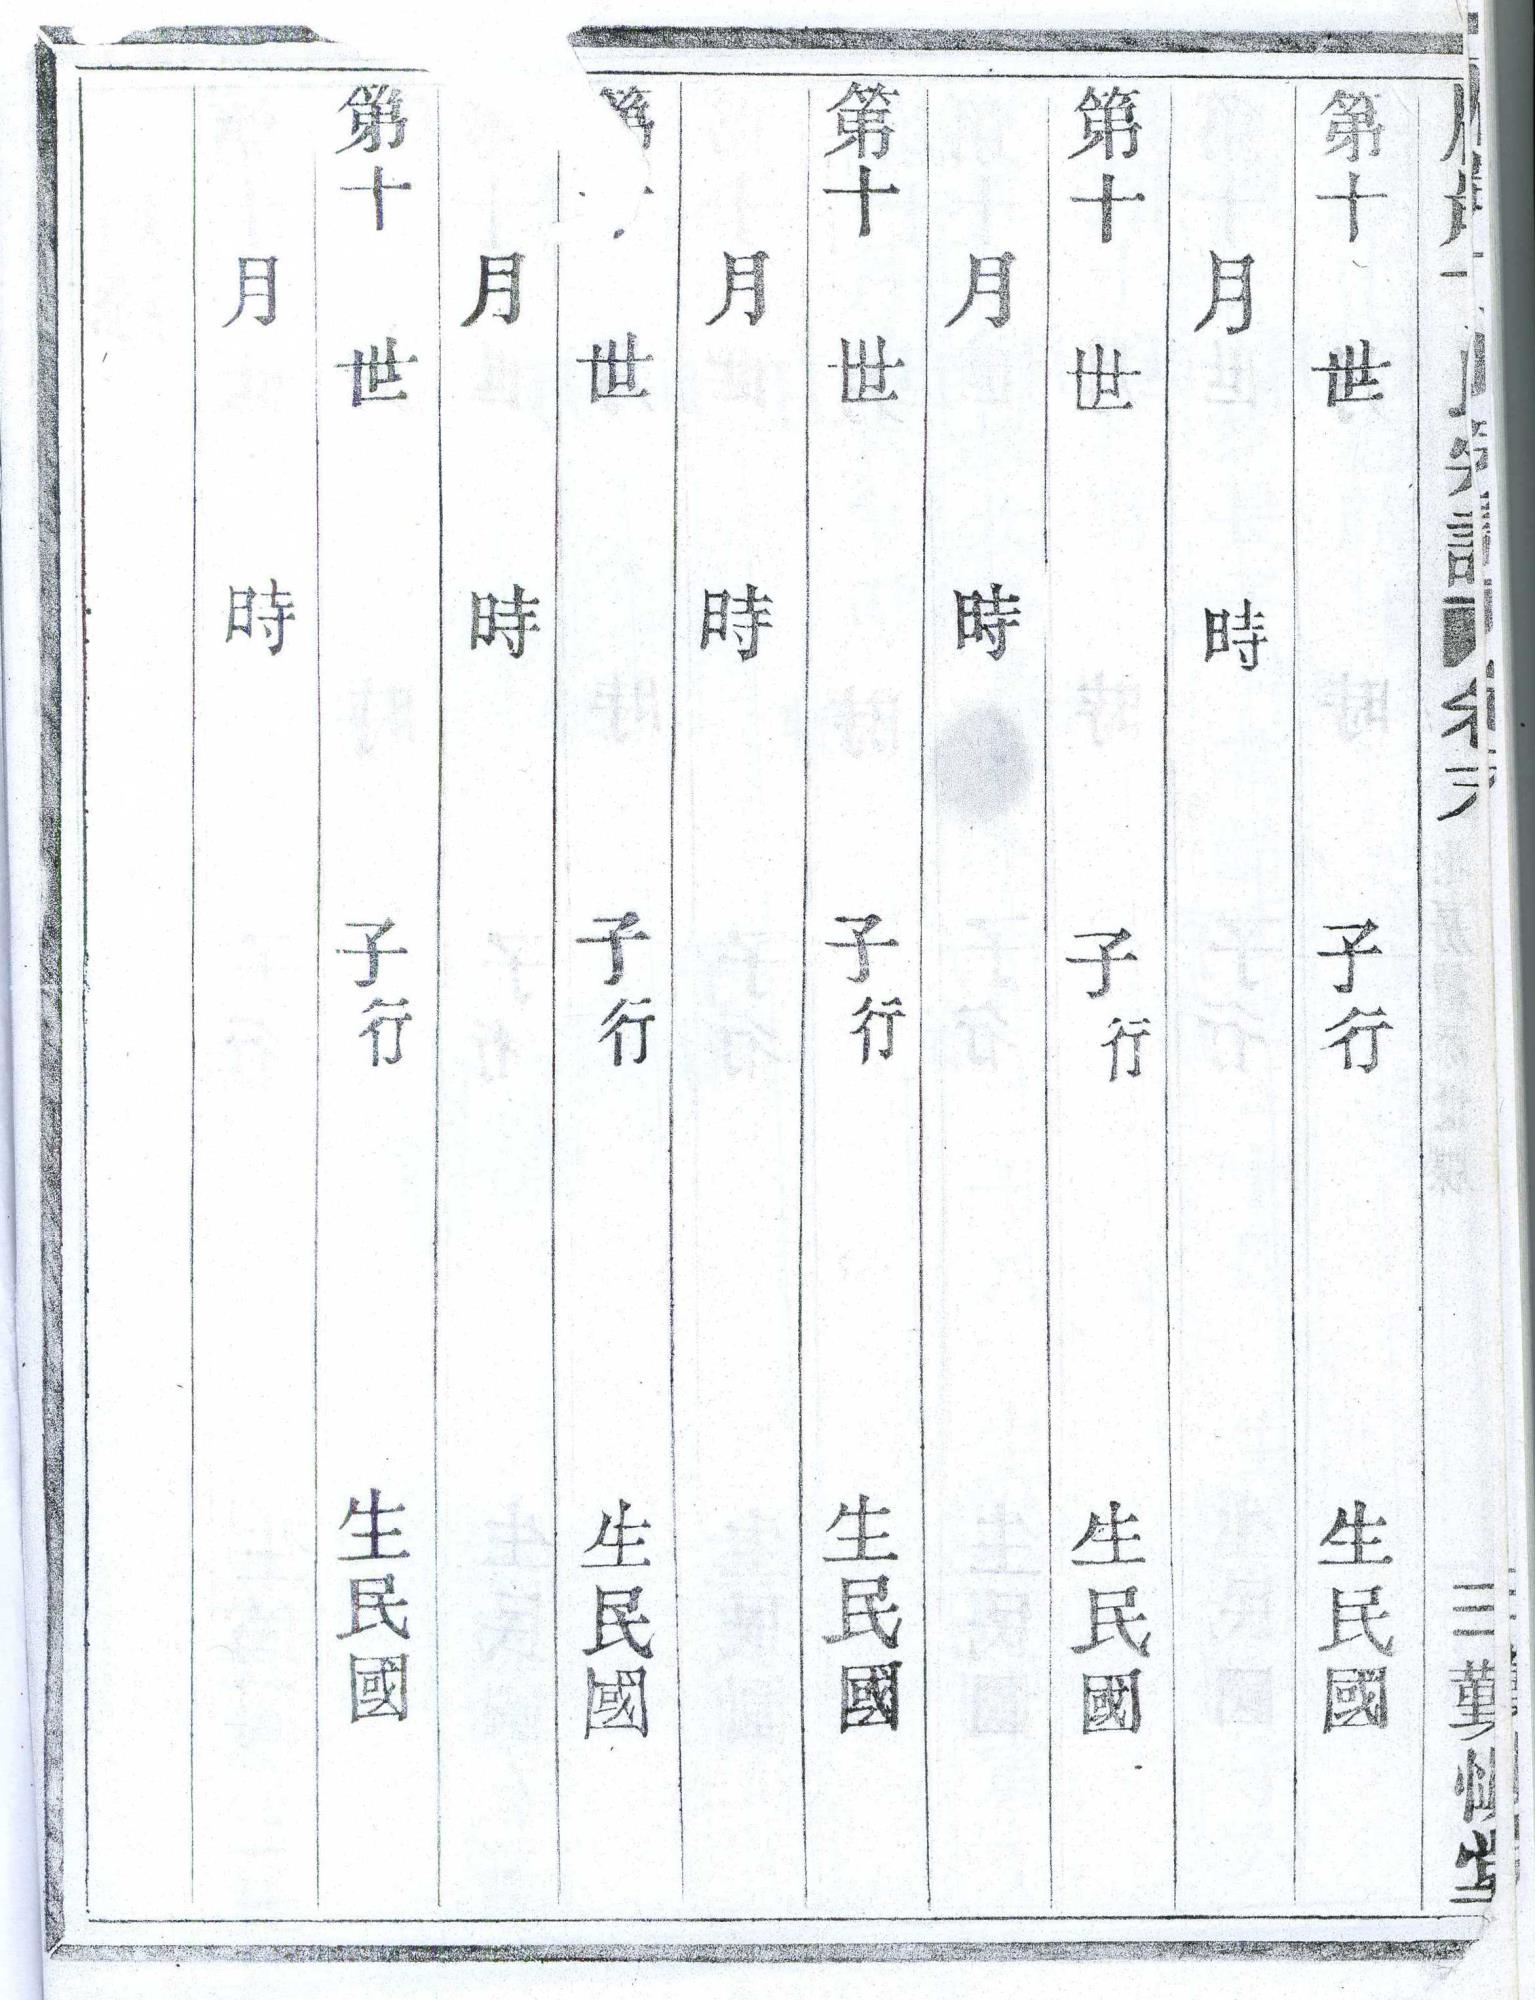 第十世子行生民國
月時
第十世子行生民國
月時
第十世子行生民國
月時
世子行生民國
月時
第十世子行生民國
月時